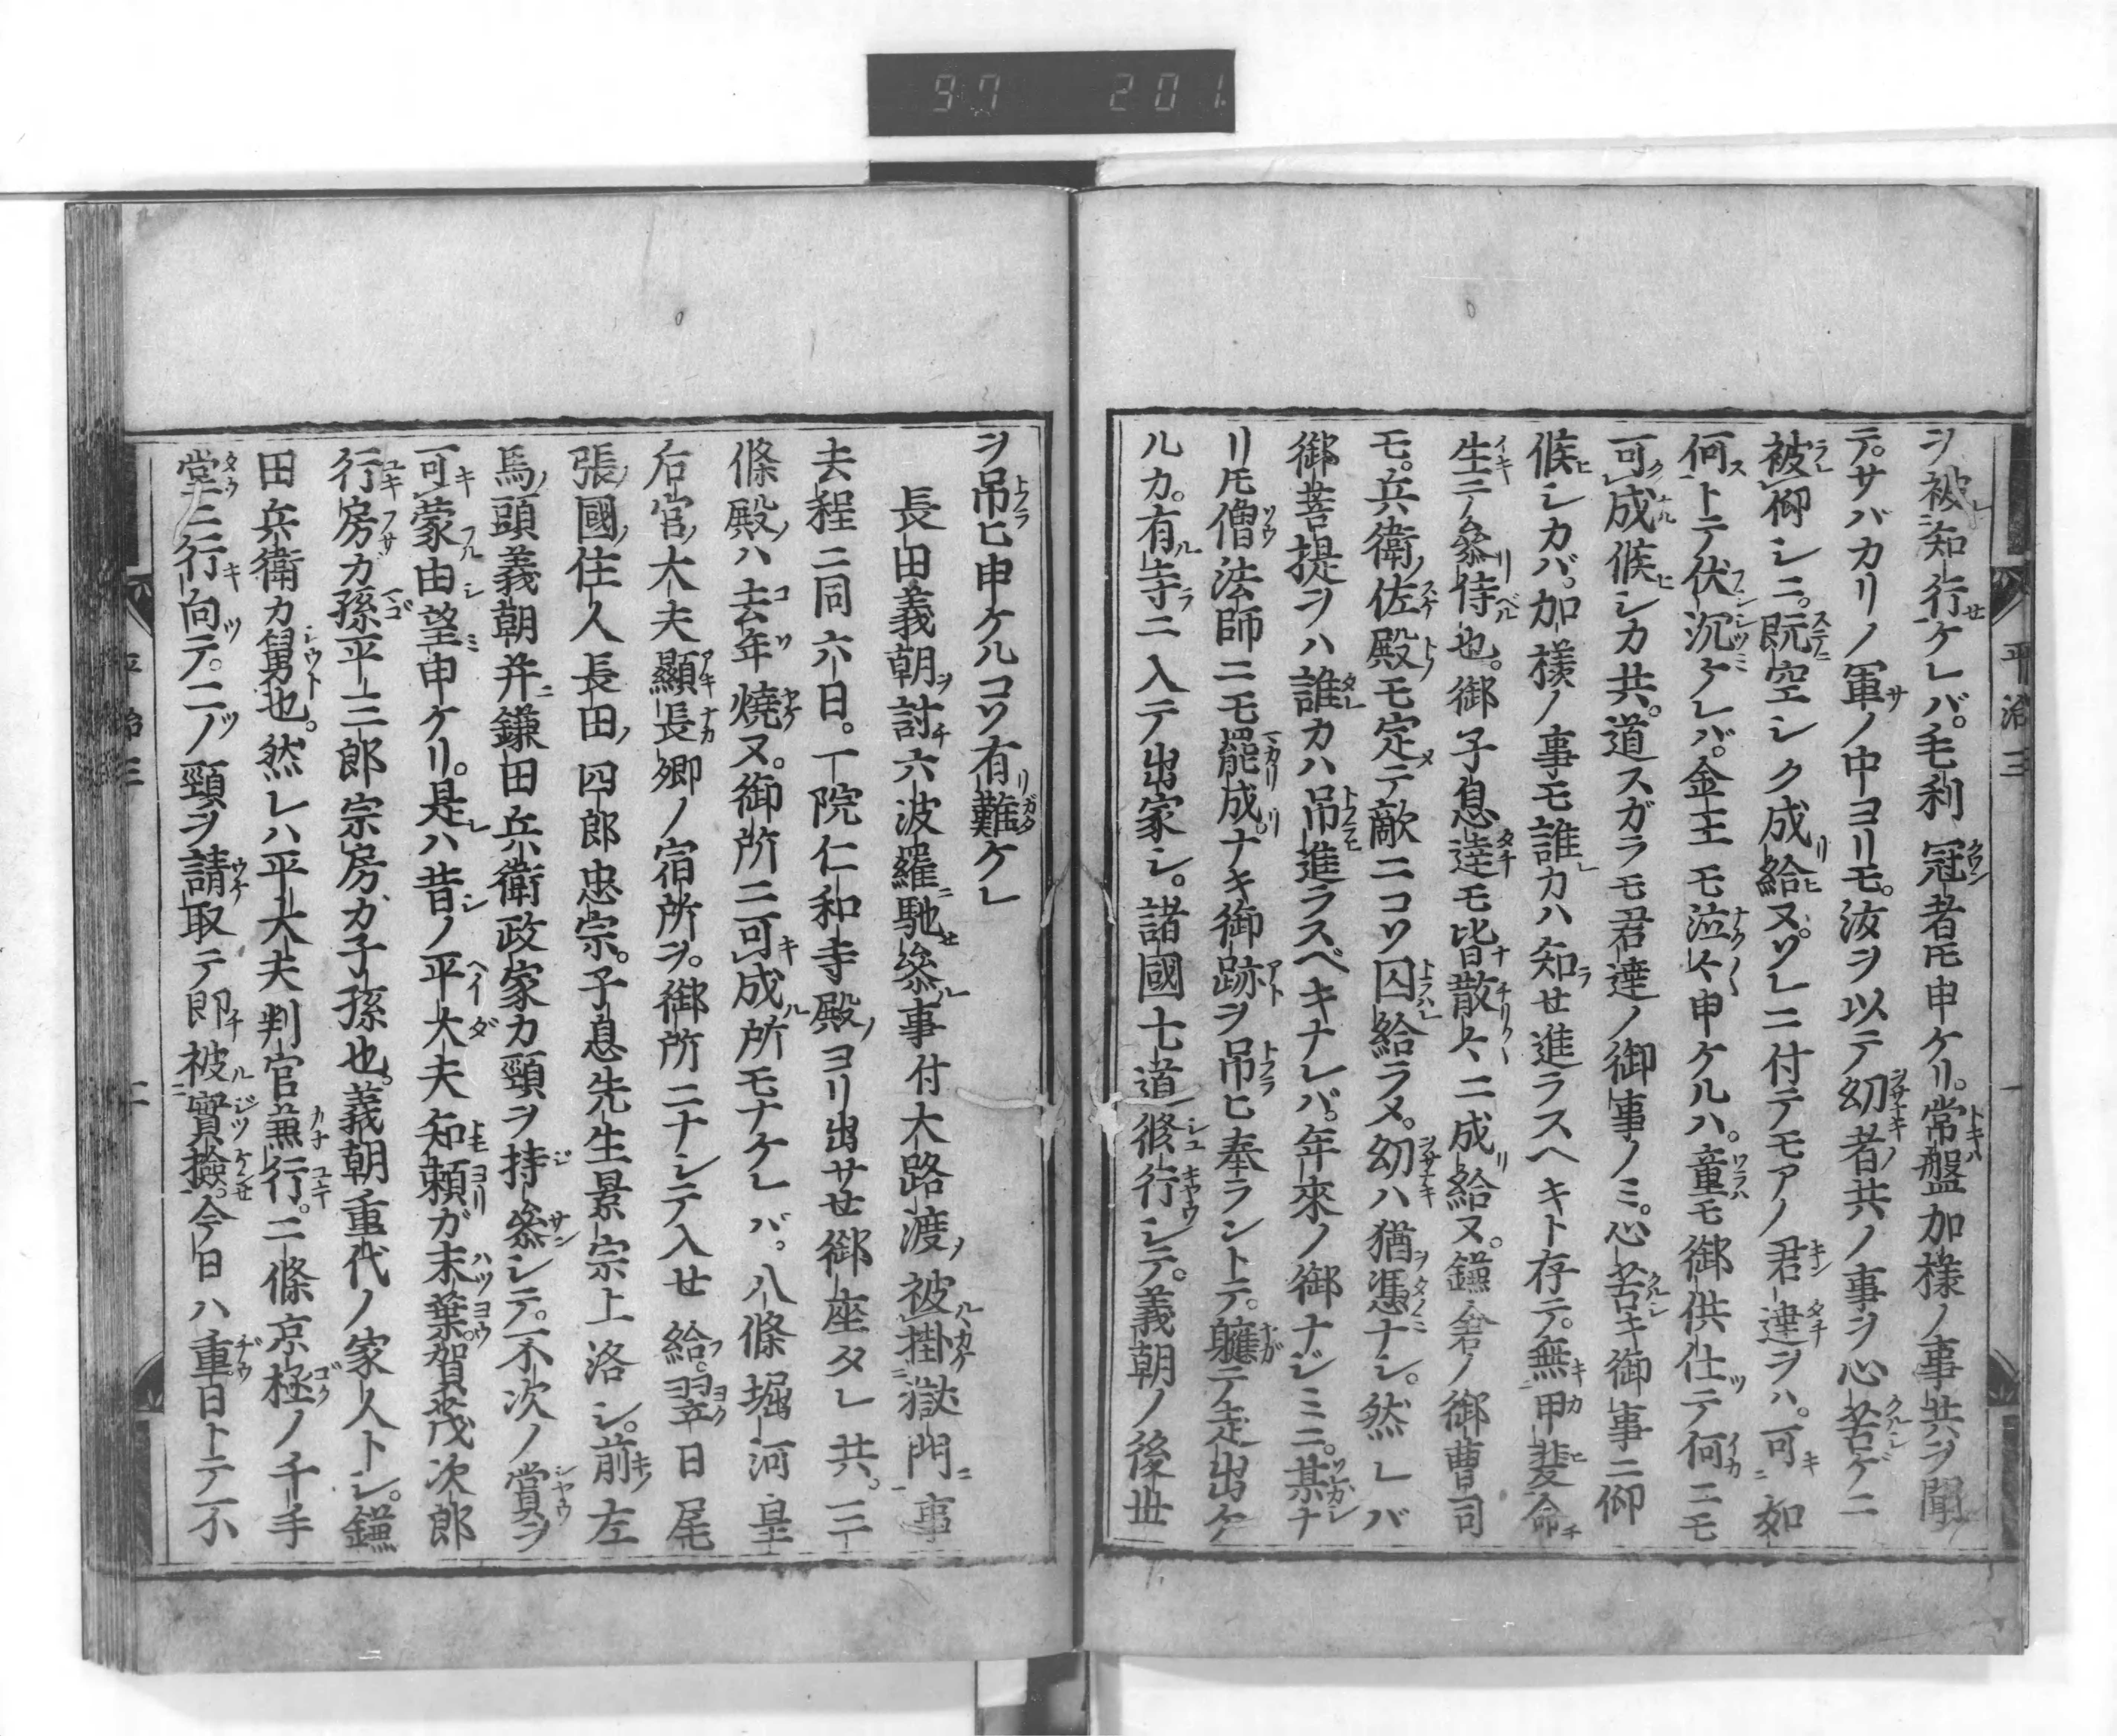 97 201
平治三
一
ヲ被知行ケレバ。毛利冠者𪜈申ケリ。常盤加様ノ事共ヲ聞
テ。サバカリノ軍ノ中ヨリモ。汝ヲ以テ幼者共ノ事ヲ心苦ゲニ
被仰シニ。既空シク成給ヌ。ソレニ付テモアノ君達ヲハ。可如
何トテ伏沉ケレバ。金王モ泣々申ケルハ。童モ御供仕テ何ニモ
可成候シカ共。道スガラモ君達ノ御事ノミ。心苦キ御事ニ仰
候シカバ。加様ノ事モ誰カハ知せ進ラスヘキト存テ。無甲斐命
生テ参侍也。御子息達モ皆散々ニ成給ヌ。鎌倉ノ御曹司
モ。兵衛佐殿モ定テ敵ニコソ囚給ラメ。幼ハ猶憑ナシ。然レバ
御菩提ヲハ誰カハ吊進ラスベキナレバ。年來ノ御ナジミニ。某ナ
リ𪜈僧法師ニモ罷成。ナキ御跡ヲ吊ヒ奉ラントテ。軈テ走出ケ
ルカ。有寺ニ入テ出家シ。諸國七道修行シテ。義朝ノ後世
ヲ吊ヒ申ケルコソ有難ケレ
長田義朝討六波羅馳参事付大路渡被掛獄門事
去程ニ同六日。一院仁和寺殿ヨリ出サせ御座タレ共。三
條殿ハ去年燒ヌ。御所ニ可成所モナケレバ。八條堀河皇
后宮大夫顯長卿ノ宿所ヲ。御所ニナシテ入せ給。翌日尾
張國住人長田四郎忠宗。子息先生景宗上洛シ。前左
馬頭義朝并鎌田兵衛政家カ頸ヲ持参シテ。不次ノ賞ヲ
可蒙由望申ケリ。是ハ昔ノ平大夫知頼ガ末葉。賀茂次郎
行房ガ孫平三郎宗房ガ子孫也。義朝重代ノ家人トシ。鎌
田兵衛カ舅也。然レハ平大夫判官兼行。二條京極ノ千手
堂ニ行向テ。二ノ頸ヲ請取テ即被實撿。今日ハ重日トテ不
平治三
二